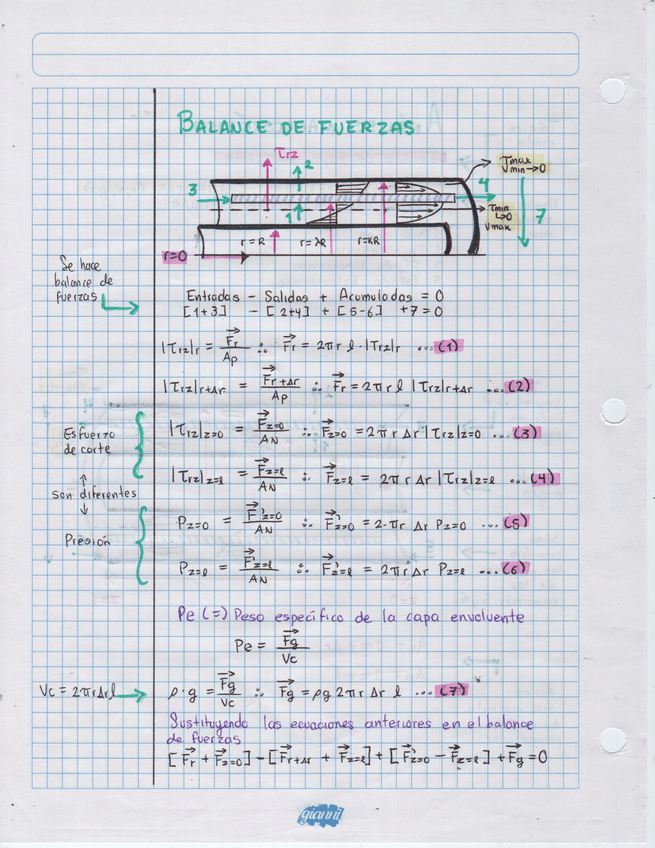 BALANCE DE FUERZAS
τrz
2
τmax
Vmin→0
3
4
1
τmin
↳0
Vmax
7
r=R
r=λR
r=κR
r=0
Se hace
balance de
fuerzas
Entradas - Salidas + Acumuladas = 0
[1+3] - [2+4] + [5-6] +7=0
|τrz|r = F⃗r / Ap ∴ F⃗r = 2πr l · |τrz|r ...(1)
|τrz|r+Δr = F⃗r+Δr / Ap ∴ F⃗r = 2πr l |τrz|r+Δr ...(2)
Esfuerzo
de corte
|τrz|z=0 = F⃗z=0 / AN ∴ F⃗z=0 = 2πr Δr |τrz|z=0 ...(3)
|τrz|z=l = F⃗z=l / AN ∴ F⃗z=l = 2πr Δr |τrz|z=l ...(4)
↑
son diferentes
↓
Presión
Pz=0 = F⃗'z=0 / AN ∴ F⃗'z=0 = 2·πr Δr Pz=0 ...(5)
Pz=l = F⃗'z=l / AN ∴ F⃗'z=l = 2πr Δr Pz=l ...(6)
Pe (=) Peso específico de la capa envolvente
Pe = F⃗g / Vc
Vc = 2πrΔrl
ρ·g = F⃗g / Vc ∴ F⃗g = ρg 2πr Δr l ...(7)
Sustituyendo las ecuaciones anteriores en el balance
de fuerzas
[F⃗r + F⃗z=0] - [F⃗r+Δr + F⃗z=l] + [F⃗'z=0 - F⃗'z=l] + F⃗g = 0
gianni